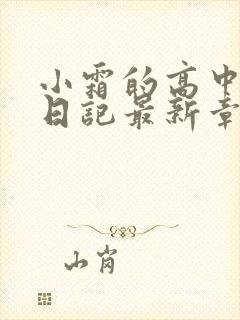 小霜的高中
日記最新章
山崗